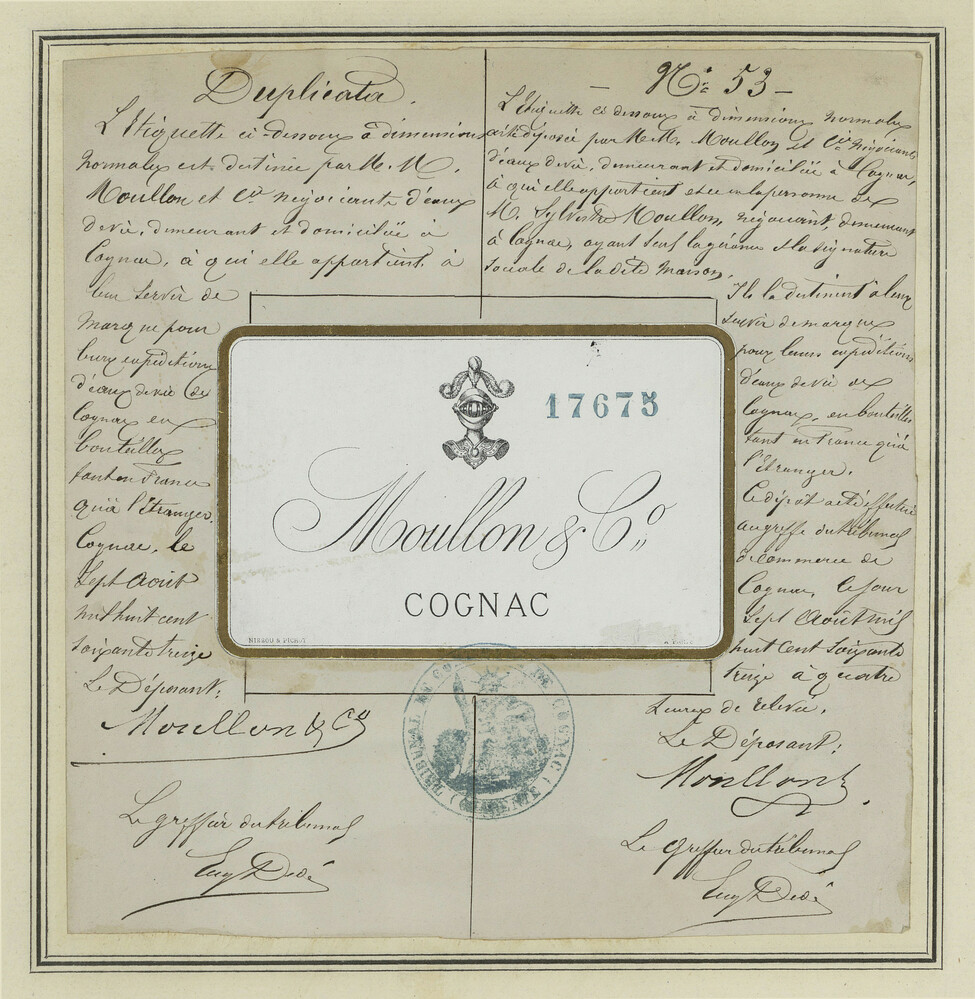 Duplicata.
L'Etiquette ci-dessous à dimensions
normales est destinée par M. M.
Moullon et Cie négociants d'eaux
de vie, demeurant et domiciliés à
Cognac, à qui elle appartient, à
leur servir de
marque pour
leurs expéditions
d'eaux de vie de
Cognac en
bouteilles
tant en France
qu'à l'étranger.
Cognac, le
Sept Août
mil huit cent
soixante treize
Le Déposant:
Moullon & Co
Le greffier du tribunal
Eug Dedé
No. 53
L'Etiquette ci dessous à dimensions normales
a été déposée par M.M. Moullon et Cie négociants
d'eaux de vie, demeurant et domiciliés à Cognac,
à qui elle appartient et ce en la personne de
M. Sylvestre Moullon, négociant, demeurant
à Cognac, ayant seul la gérance et la signature
sociale de la dite maison.
Ils la destinent à leur
servir de marque
pour leurs expéditions
d'eaux de vie de
Cognac, en bouteilles
tant en France qu'à
l'étranger.
Ce dépôt a été effectué
au greffe du tribunal
de commerce de
Cognac, ce jour
Sept Août mil
huit cent soixante
treize à quatre
heures de relevée.
Le Déposant:
Moullon
Le Greffier du tribunal
Eug Dedé
17675
Moullon & Co
COGNAC
TRIBUNAL DE COGNAC